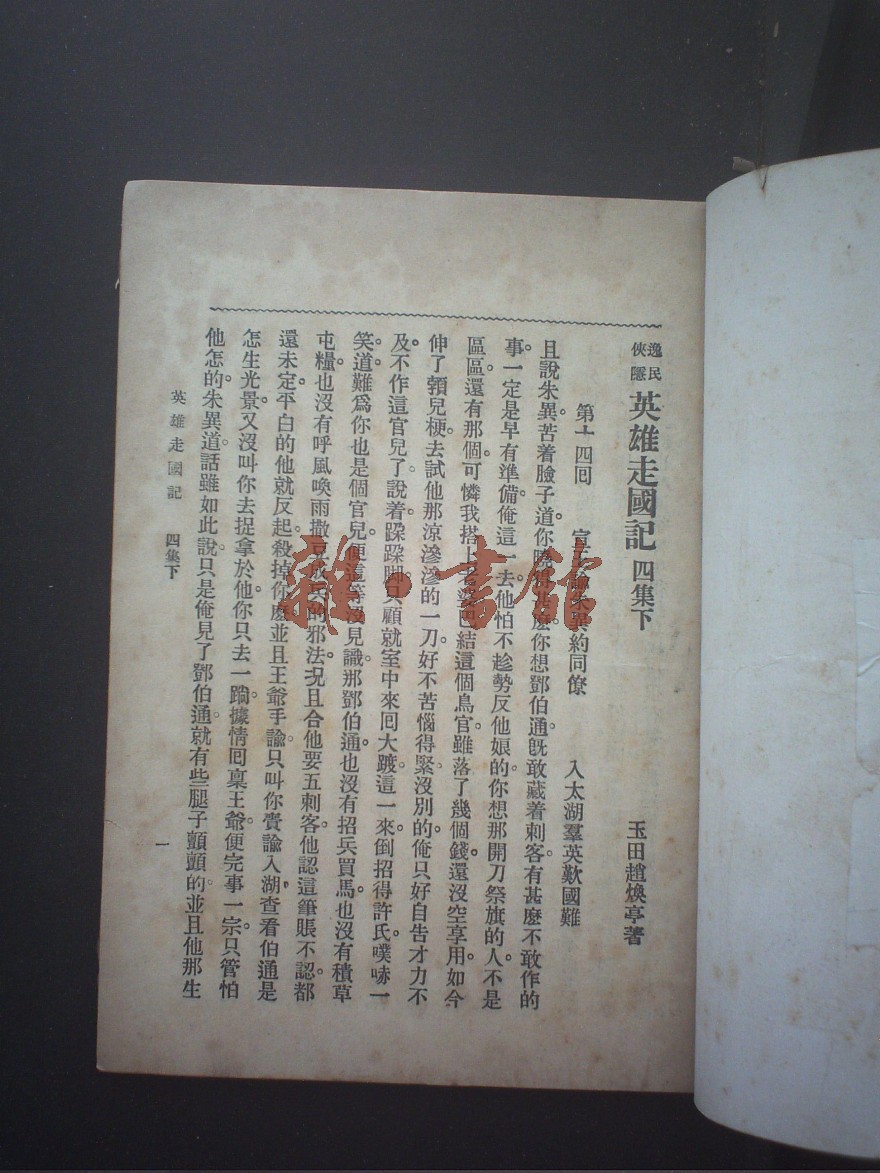 逸民
俠隱
英雄走國記 四集下
玉田趙煥亭著
第十四回 宣手諭朱異約同僚 入太湖羣英歎國難
且說朱異苦着臉子道你曉得甚麼你想鄧伯通旣敢藏着刺客有甚麼不敢作的
事。一定是早有準備俺這一去他怕不趁勢反他娘的。你想那開刀祭旗的人不是
區區還有那個。可憐我搭上老婆巴結這個鳥官。雖落了幾個錢。還沒空享用。如今
伸了頸兒梗。去試他那涼滲滲的一刀。好不苦惱得緊。沒別的。俺只好自告才力不
及。不作這官兒了。說着跺跺脚。只顧就室中來回大踱。這一來。倒招得許氏噗哧一
笑道。難爲你也是個官兒。便這等沒見識。那鄧伯通。也沒有招兵買馬。也沒有積草
屯糧。也沒有呼風喚雨撒豆成兵的邪法。況且合他要五刺客。他認這筆賬不認。都
還未定。平白的他就反起。殺掉你麼。並且王爺手諭。只叫你賫諭入湖。查看伯通是
怎生光景。又沒叫你去捉拿於他。你只去一蹚。據情回稟王爺。便完事一宗。只管怕
他怎的。朱異道。話雖如此說。只是俺見了鄧伯通。就有些腿子顫顫的。並且他那生
英雄走國記 四集下
一
雜·書館